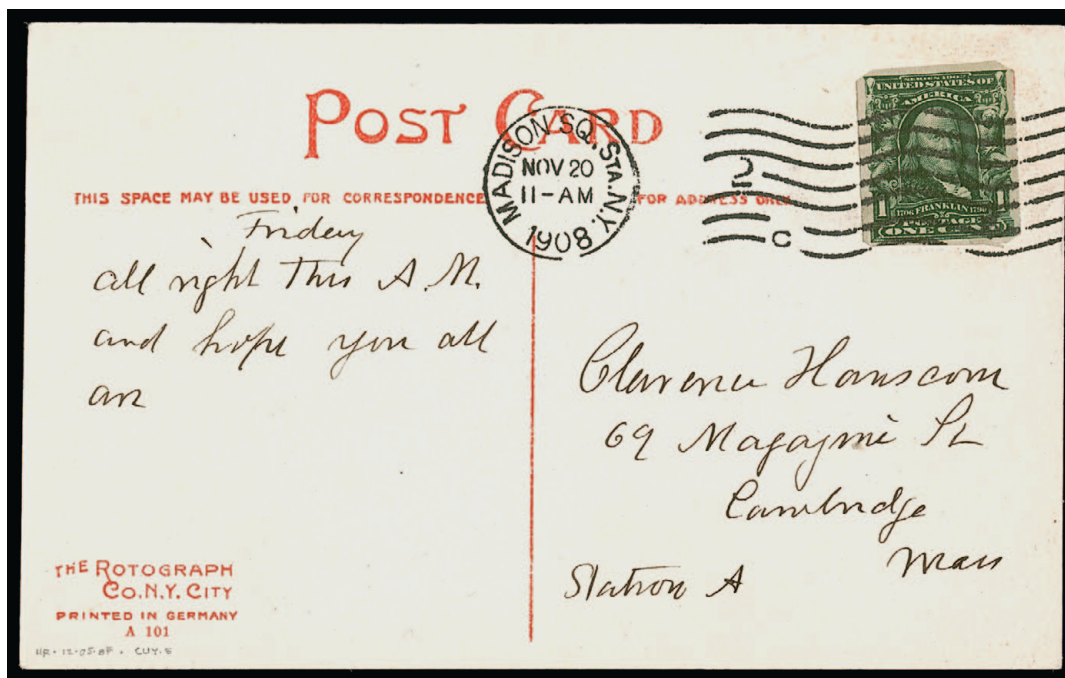 POST CARD
THIS SPACE MAY BE USED FOR CORRESPONDENCE
FOR ADDRESS ONLY
MADISON SQ. STA. N.Y.
NOV 20
11-AM
1908
2
C
SERIES 1902
UNITED STATES OF
AMERICA
1 1706 FRANKLIN 1790 1
POSTAGE
ONE CENT
Friday
all right this A.M.
and hope you all
are
Clarence Hanscom
69 Magazine St
Cambridge
Mass
Station A
THE ROTOGRAPH
CO. N.Y. CITY
PRINTED IN GERMANY
A 101